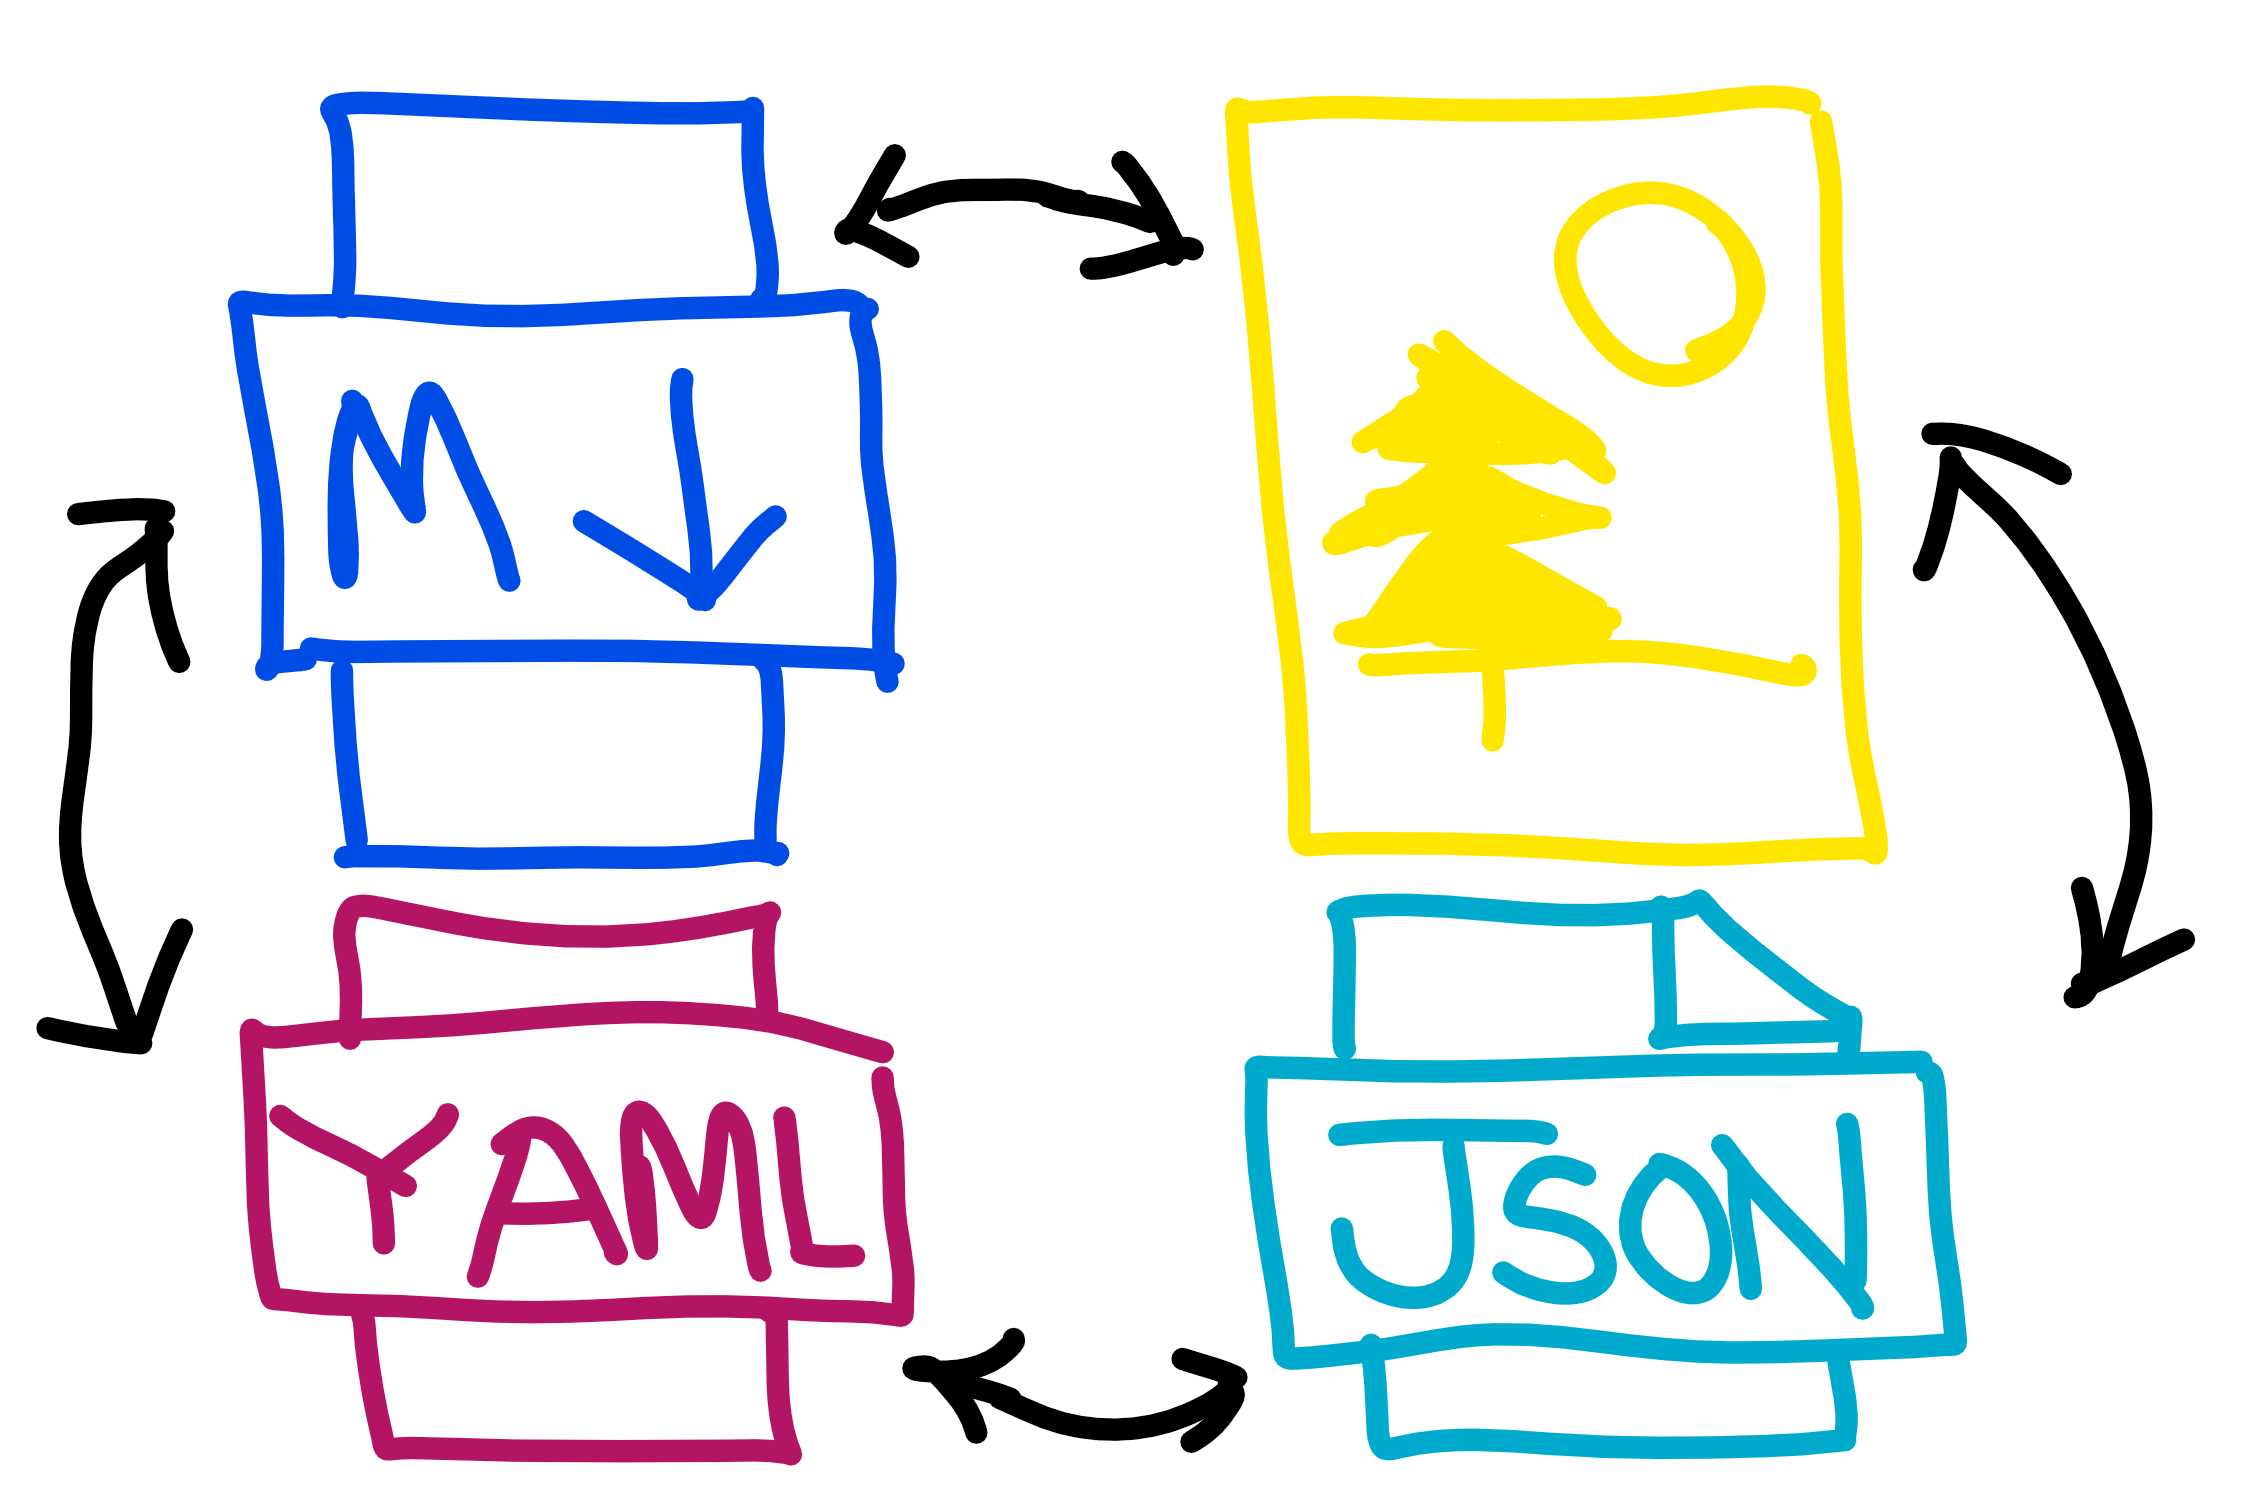 M↓
YAML
JSON